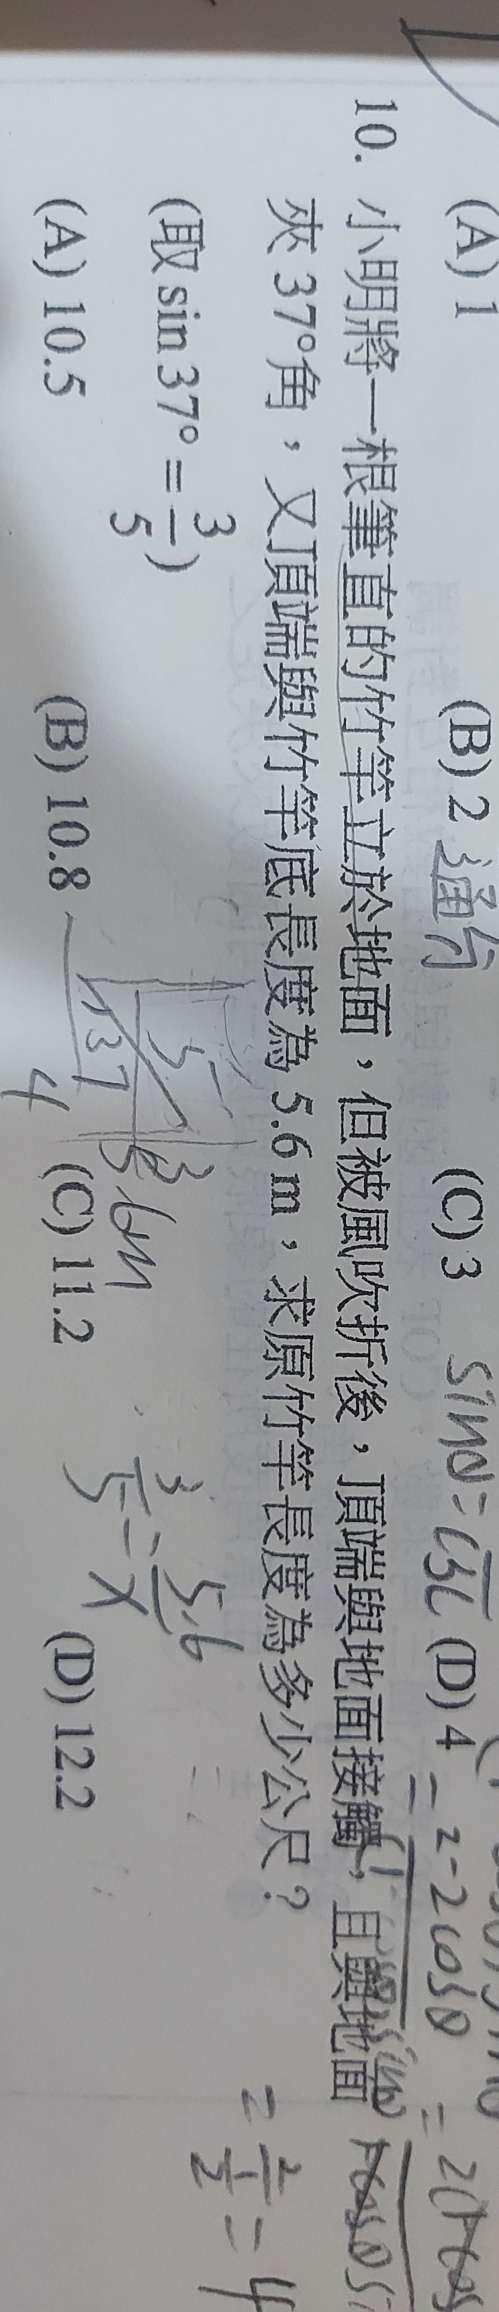 (A) 1 (B) 2 (C) 3 (D) 4
通分
sinθ=
= 2-2cosθ
10. 小明將一根筆直的竹竿立於地面，但被風吹折後，頂端與地面接觸，且與地面
夾 37°角，又頂端與竹竿底長度為 5.6 m，求原竹竿長度為多少公尺？
(取 sin 37° = 3/5)
5
37
4
3
3/5 = 5.6/x
= 4
(A) 10.5 (B) 10.8 (C) 11.2 (D) 12.2